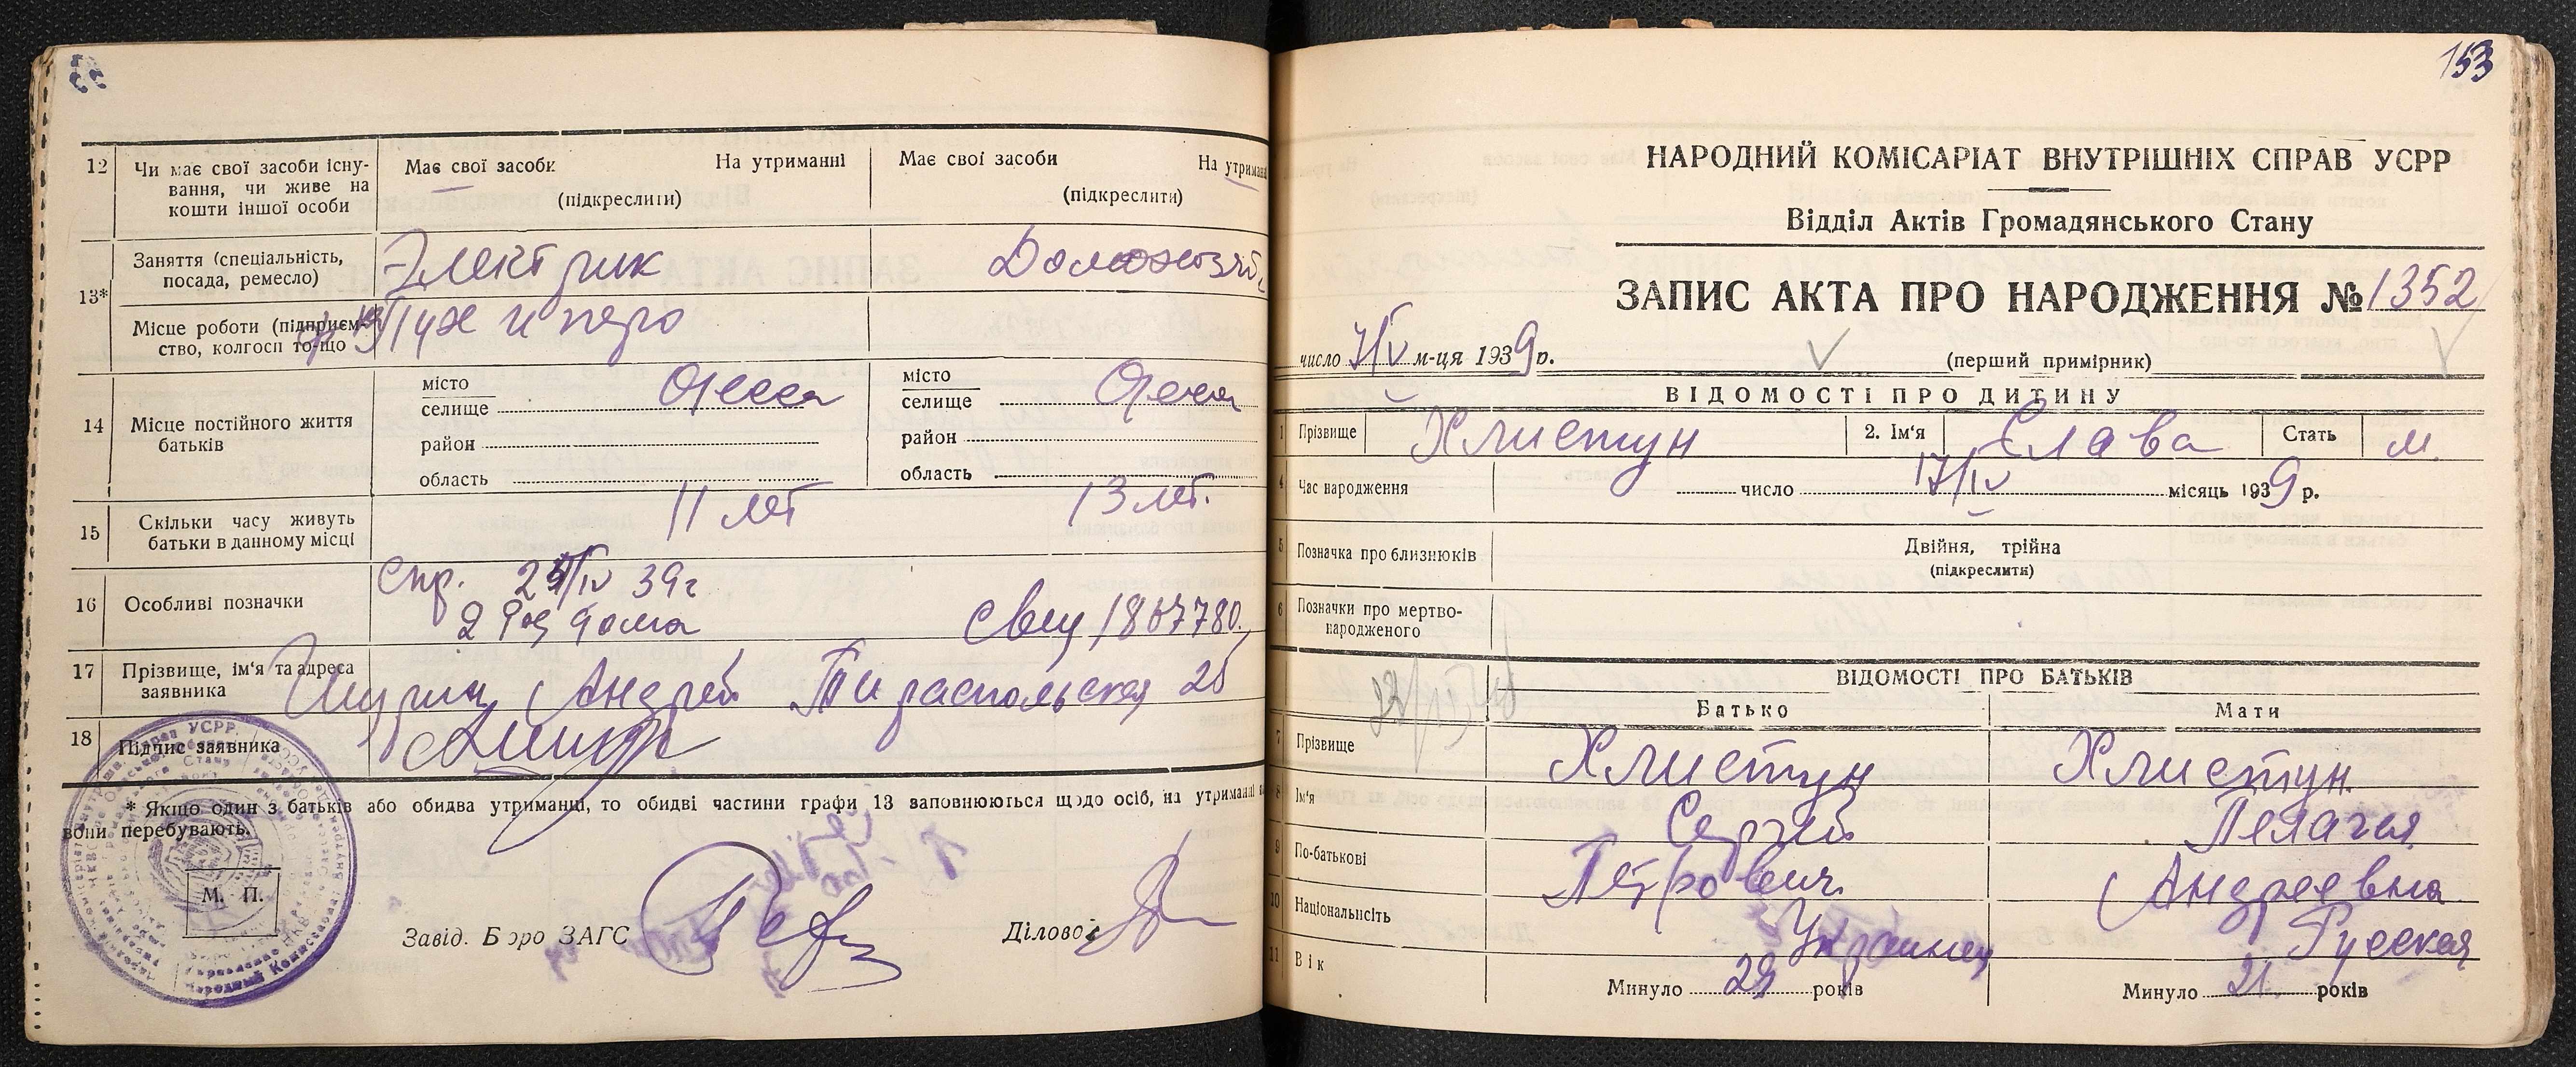 12 Чи має свої засоби існування, чи живе на кошти іншої особи
Має свої засоби На утриманні
(підкреслити)
Має свої засоби На утриманні
(підкреслити)
13* Заняття (спеціальність, посада, ремесло)
Электрик
Домохозяйка
Місце роботи (підприємство, колгосп то-що
Пух и перо
14 Місце постійного життя батьків
місто
селище Одесса
район
область
місто
селище Одесса
район
область
15 Скільки часу живуть батьки в данному місці
11 лет
13 лет.
16 Особливі позначки
Спр. 25/IV 39г
2 Род дома
Свид 1867780.
17 Прізвище, ім'я та адреса заявника
Андрей Тираспольская 25
18 Підпис заявника
* Якщо один з батьків або обидва утриманці, то обидві частини графи 13 заповнюються щодо осіб, на утриманні
вони перебувають.
М. П.
Завід. Бюро ЗАГС
Діловод
153
НАРОДНИЙ КОМІСАРІАТ ВНУТРІШНІХ СПРАВ УСРР
Відділ Актів Громадянського Стану
ЗАПИС АКТА ПРО НАРОДЖЕННЯ № 1352
число 7/V м-ця 1939 р.
(перший примірник)
ВІДОМОСТІ ПРО ДИТИНУ
1 Прізвище Хлистун 2. Ім'я Слава Стать м.
4 Час народження число 17/IV місяць 1939 р.
5 Позначка про близнюків Двійня, трійна
(підкреслити)
6 Позначки про мертвонародженого
ВІДОМОСТІ ПРО БАТЬКІВ
Батько Мати
7 Прізвище Хлистун Хлистун.
8 Ім'я Сергей Пелагея
9 По-батькові Петрович Андреевна
10 Національність Украинец Русская
11 Вік Минуло 29 років Минуло 21 років